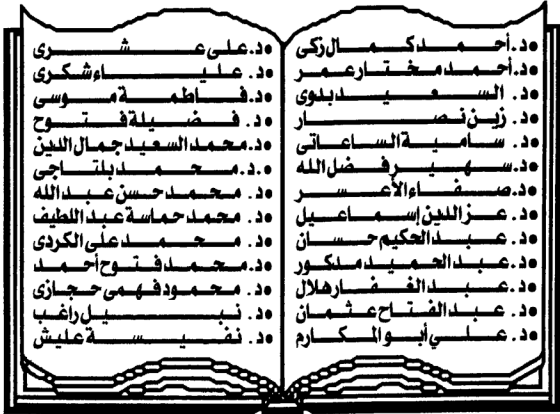 •د. أحمد كمال زكى
•د. أحمد مختار عمر
•د. السعيد بدوى
•د. زين نصار
•د. سامية الساعاتى
•د. سهير فضل الله
•د. صفاء الأعسر
•د. عز الدين إسماعيل
•د. عبد الحكيم حسان
•د. عبد الحميد مدكور
•د. عبد الغفار هلال
•د. عبد الفتاح عثمان
•د. علي أبو المكارم
•د. على عشرى
•د. علياء شكرى
•د. فاطمة موسى
•د. فضيلة فتوح
•د. محمد السعيد جمال الدين
•د. محمد بلتاجى
•د. محمد حسن عبد الله
•د. محمد حماسة عبد اللطيف
•د. محمد على الكردى
•د. محمد فتوح أحمد
•د. محمود فهمى حجازى
•د. نبيل راغب
•د. نفيسة عليش